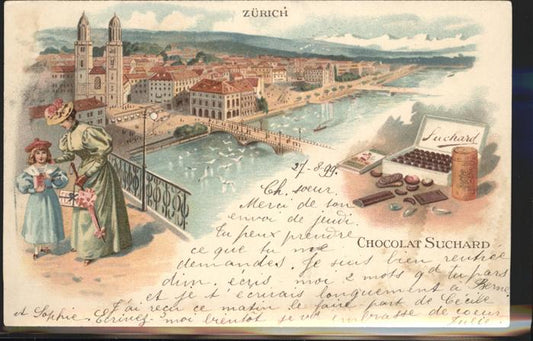 ZÜRICH
Suchard
27-8-99.
Ch. sœur
Merci de ton
envoi de jeudi.
Tu peux prendre
ce que tu me
demandes. Je suis bien rentrée
dim. écris moi 2 mots qd tu pars
et je t'écrirais longuement à Berne
J'ai reçu ce matin le faire part de Cécile
et Sophie. Ecrivez-moi bientôt je vs embrasse de cœur
CHOCOLAT SUCHARD